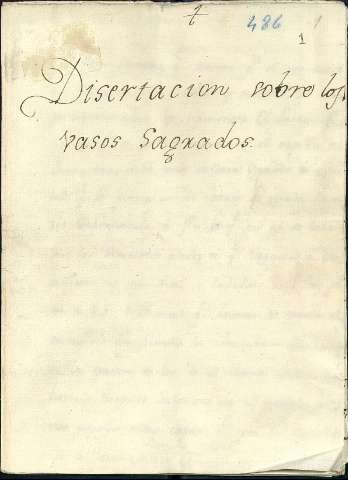 486 1
1
Disertacion sobre los
vasos Sagrados